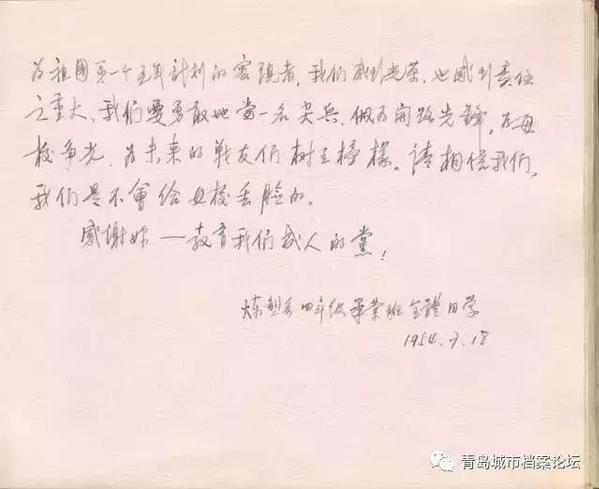 为祖國第一个五年計划的实現者，我们感到光荣，也感到責任
之重大，我们要勇敢地當一名尖兵，做个開路先鋒，为母
校争光，为未来的戰友们树立榜樣。請相信我们，
我们是不會给母校丢脸的。
感謝妳—教育我们成人的黨！
四年级畢業班全體同学
1954.7.18
青岛城市档案论坛